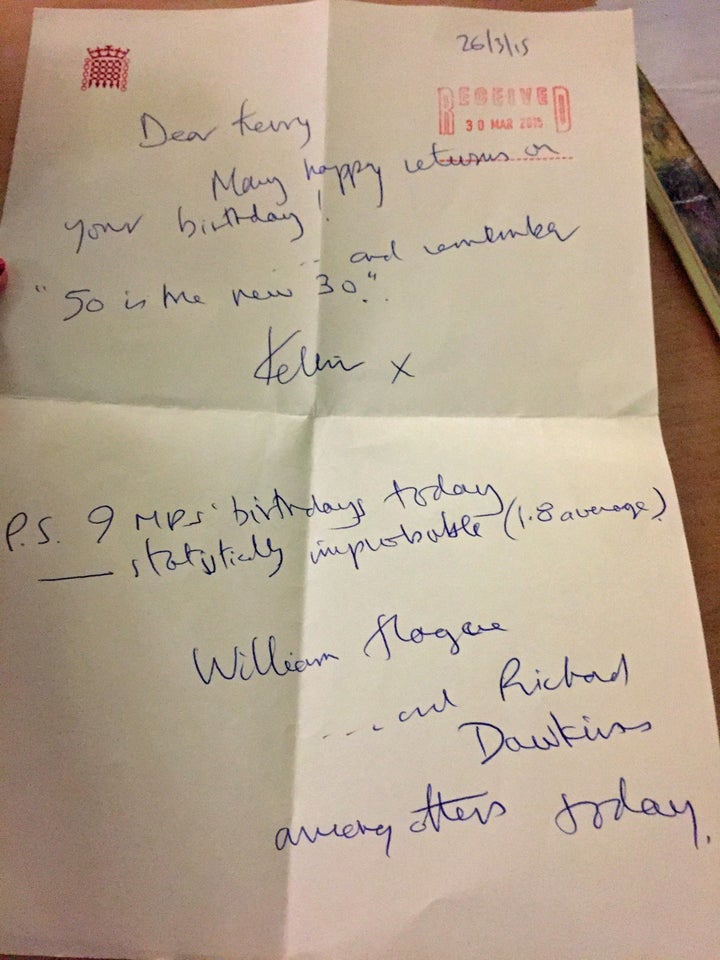 26/3/15
RECEIVED
30 MAR 2015
Dear Kerry
Many happy returns on
your birthday!
... and remember
"50 is the new 30."
Kelvin x
P.S. 9 MPs' birthdays today
— statistically improbable (1.8 average)
William Hague
.... and Richard
Dawkins
among others today.